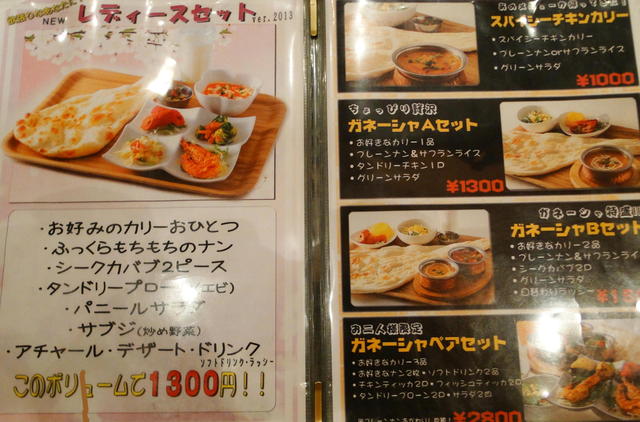 NEW レディースセット ver.2013
・お好みのカリーおひとつ
・ふっくらもちもちのナン
・シークカバブ２ピース
・タンドリープローン(エビ)
・パニールサラダ
・サブジ(炒め野菜)
・アチャール・デザート・ドリンク
ソフトドリンク・ラッシー
このボリュームで1300円！！
スパイシーチキンカリー
・スパイシーチキンカリー
・プレーンナンorサフランライス
・グリーンサラダ
¥1000
ちょっぴり贅沢
ガネーシャAセット
・お好きなカリー1品
・プレーンナン&サフランライス
・タンドリーチキン1P
・グリーンサラダ
¥1300
ガネーシャ特盛
ガネーシャBセット
・お好きなカリー2品
・プレーンナン&サフランライス
・シークカバブ2P
・グリーンサラダ
・日替わりラッシー
お二人様限定
ガネーシャペアセット
・お好きなカリー3品
・お好きなナン2枚・ソフトドリンク2品
・チキンティッカ2P・フィッシュティッカ2P
・タンドリープローン2P・サラダ2皿
¥2800